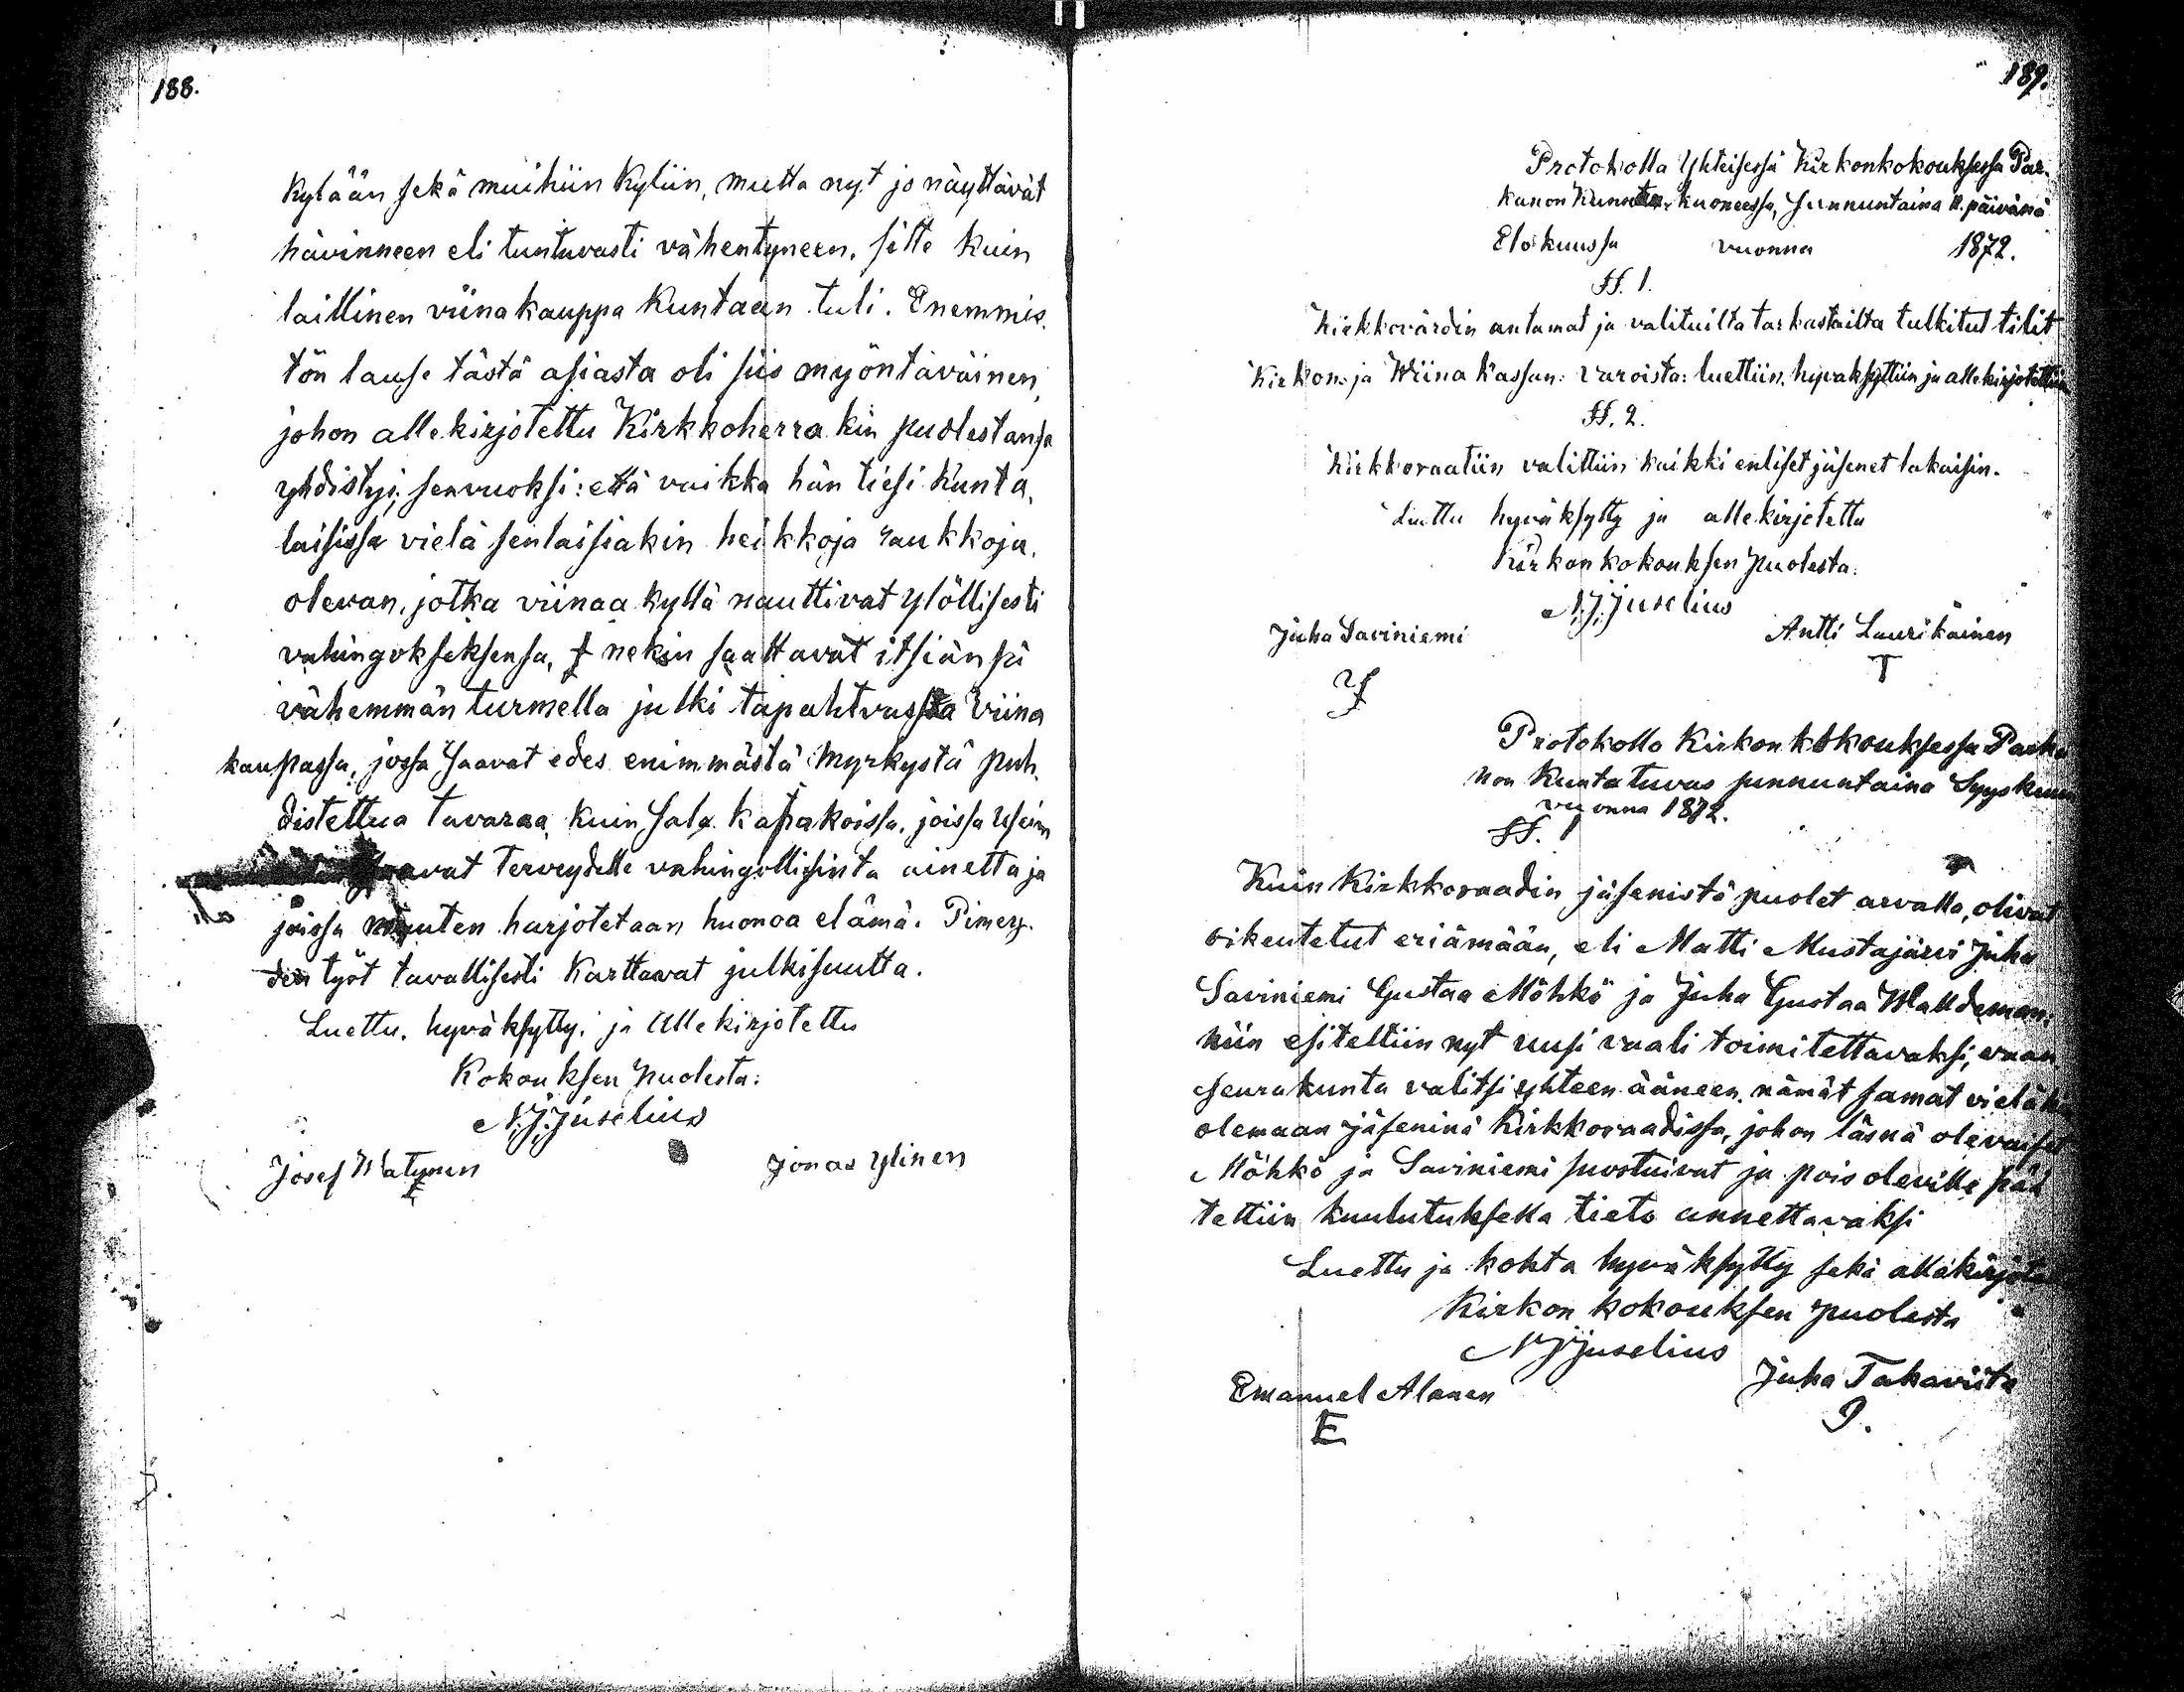 188.
Kylään sekä muihiin Kyliin, mutta nyt jo näyttävät
hävinneen eli tuntuvasti vähentyneen, sitte kuin
laillinen viinakauppa Kuntaan tuli. Enemmis
tön lause tästä asiasta oli siis myöntäväinen,
johon allekirjotettu Kirkkoherra kin puolestansa
yhdistyi, senvuoksi: että vaikka hän tiesi Kunta,
laisissa vielä senlaisiakin heikkoja raukkoja,
olevan, jotka viinaa kyllä nauttivat ylöllisesti
vahingokseksensa, nekin saattavat itsiänsä
vähemmän turmella julki tapahtvassa viina
kaupassa, jossa saavat edes enimmästä myrkystä puh
distettua tavaraa, kuin sala kapakoissa, joissa usein
saavat terveydelle vahingollisinta ainetta ja
joissa muuten harjotetaan huonoa elämä. Pimey.
den työt tavallisesti Karttavat julkisuutta.
Luettu, hyväksytty, ja Allekirjotettu
Kokouksen puolesta:
N.J. Juselius
Josef Matynen
Jonas Ylinen
189.
Protokolla Yhteisessä Kirkonkokouksessa Par.
kanon Kunnan huoneessa, sunnuntaina 11. päivänä
Elokuussa vuonna 1872.
§§. 1.
Kirkkovärdin antamat ja valituilta tarkastailta tulkitut tilit
Kirkon: ja Wiina kassan: varoista: luettiin, hyväksyttiin ja allekirjotettiin
§§. 2.
Kirkkoraatiin valittiin kaikki enliset jäsenet takaisin.
Luettu hyväksytty ja allekirjotettu
Kirkon kokouksen puolesta:
N.J. Juselius
Juha Saviniemi
Antti Laurikainen
T
Protokolla Kirkon kokouksessa Parka
non Kuntatuvas sunnuntaina Syyskuun
vuonna 1872.
§§. 1
Kuin Kirkkoraadin jäsenistä puolet arvalla, olivat
oikeutetut eriämään, eli Matti Mustajärvi Juha
Saviniemi Gustaa Möhkö ja Juha Gustaa Walldeman,
niin esiteltiin nyt uusi vaali toimitettavaksi, vaan
seurakunta valitsi yhteen ääneen nämät samat vieläkin
olemaan jäseninä Kirkkoraadissa, johon läsnä olevaiset
Möhkö ja Saviniemi suostuivat ja pois oleville pää
tettiin kuulutuksella tieto annettavaksi
Luettu ja kohta hyväksytty sekä allekirjotettu
Kirkon kokouksen puolesta
N J Juselius
Emanuel Alanen
Juha Takaviita
E